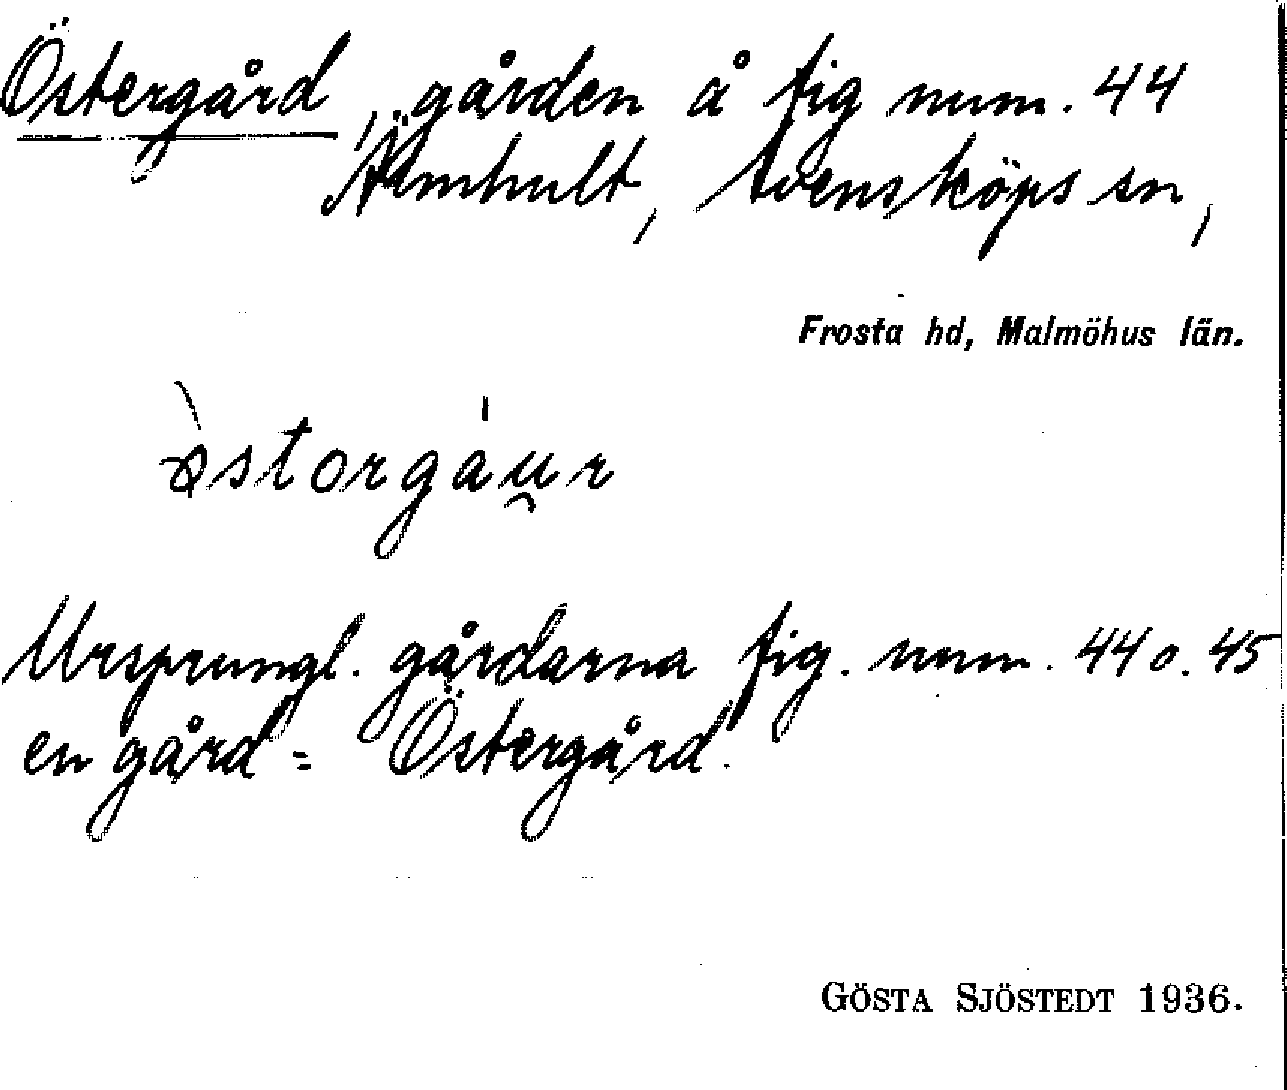 Östergård, gården å fig num. 44
Ämhult, Svensköps sn,
Frosta hd, Malmöhus län.
Ursprungl. gårdarna fig. num. 44 o. 45
en gård = Östergård.
GÖSTA SJÖSTEDT 1936.